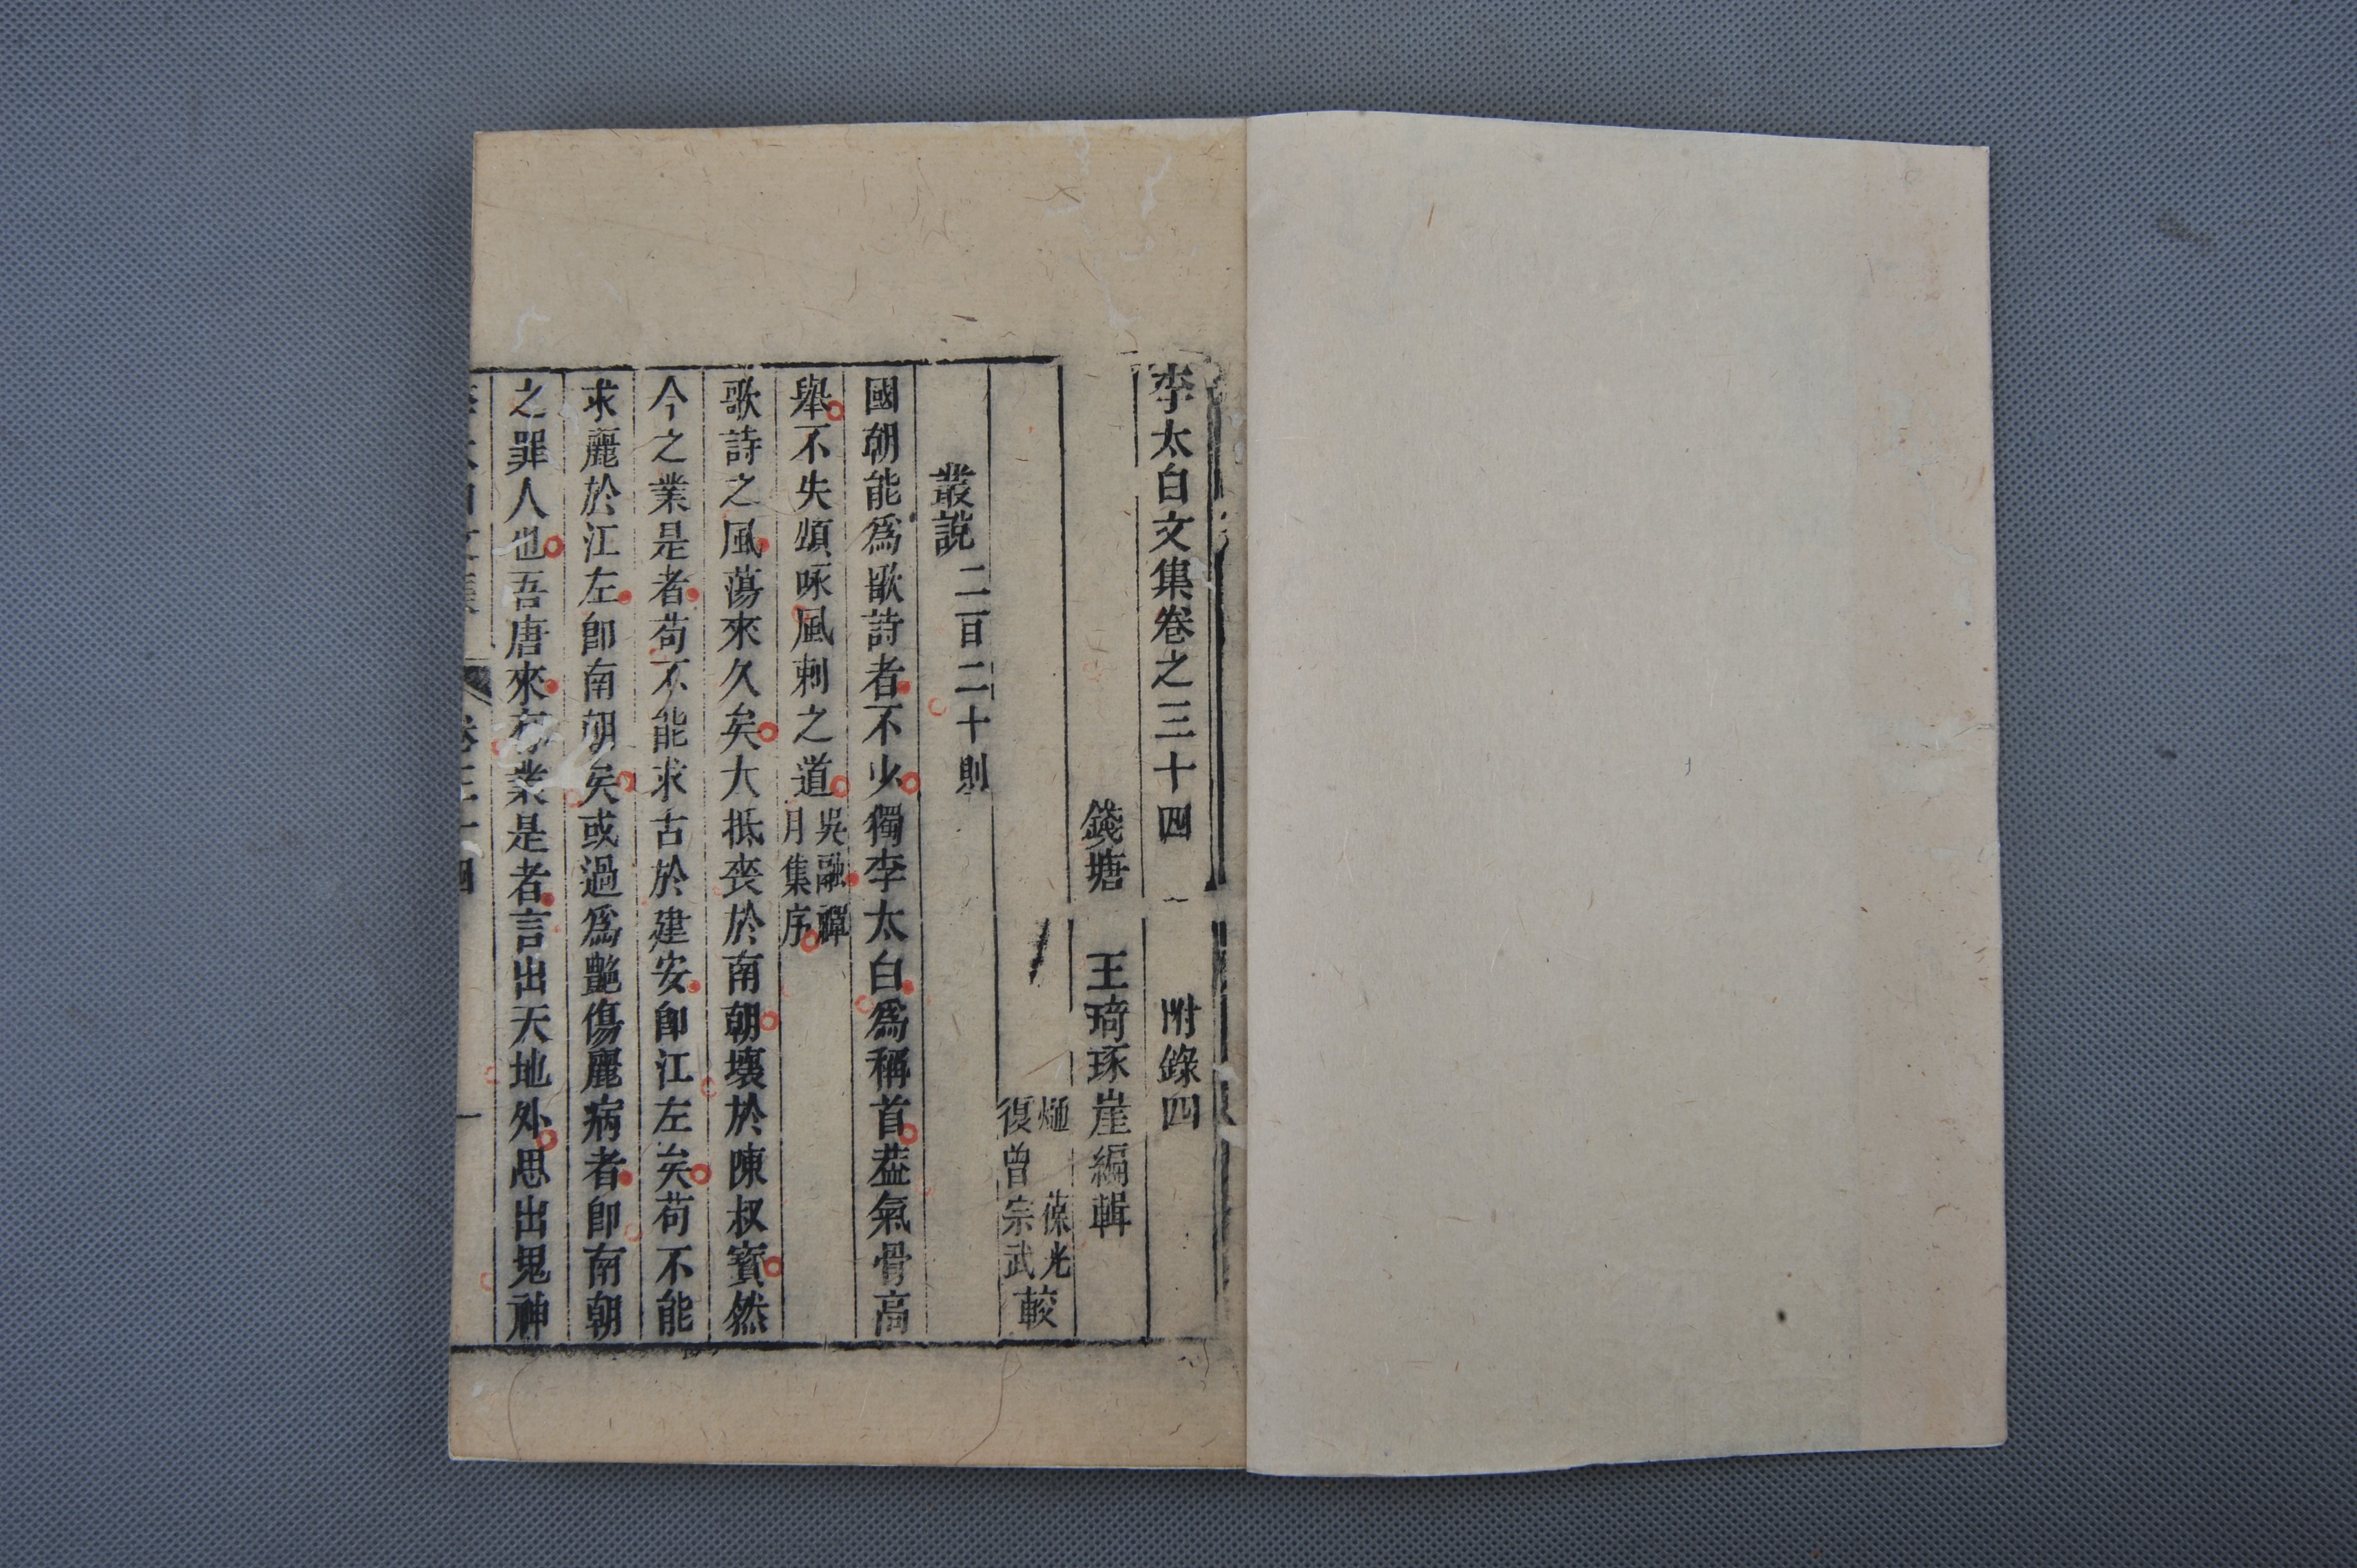 李太白文集卷之三十四　附錄四
錢塘　王琦琢崖編輯
縉　葆光
復曾宗武　較
叢說　二百二十則
國朝能爲歌詩者不少獨李太白爲稱首葢氣骨高
舉不失頌咏風刺之道吳融禪
月集序
歌詩之風蕩來久矣大抵䘮於南朝壞於陳叔寶然
今之業是者苟不能求古於建安卽江左矣苟不能
求麗於江左卽南朝矣或過爲艷傷麗病者卽南朝
之罪人也吾唐來有業是者言出天地外思出鬼神
卷三十四
一